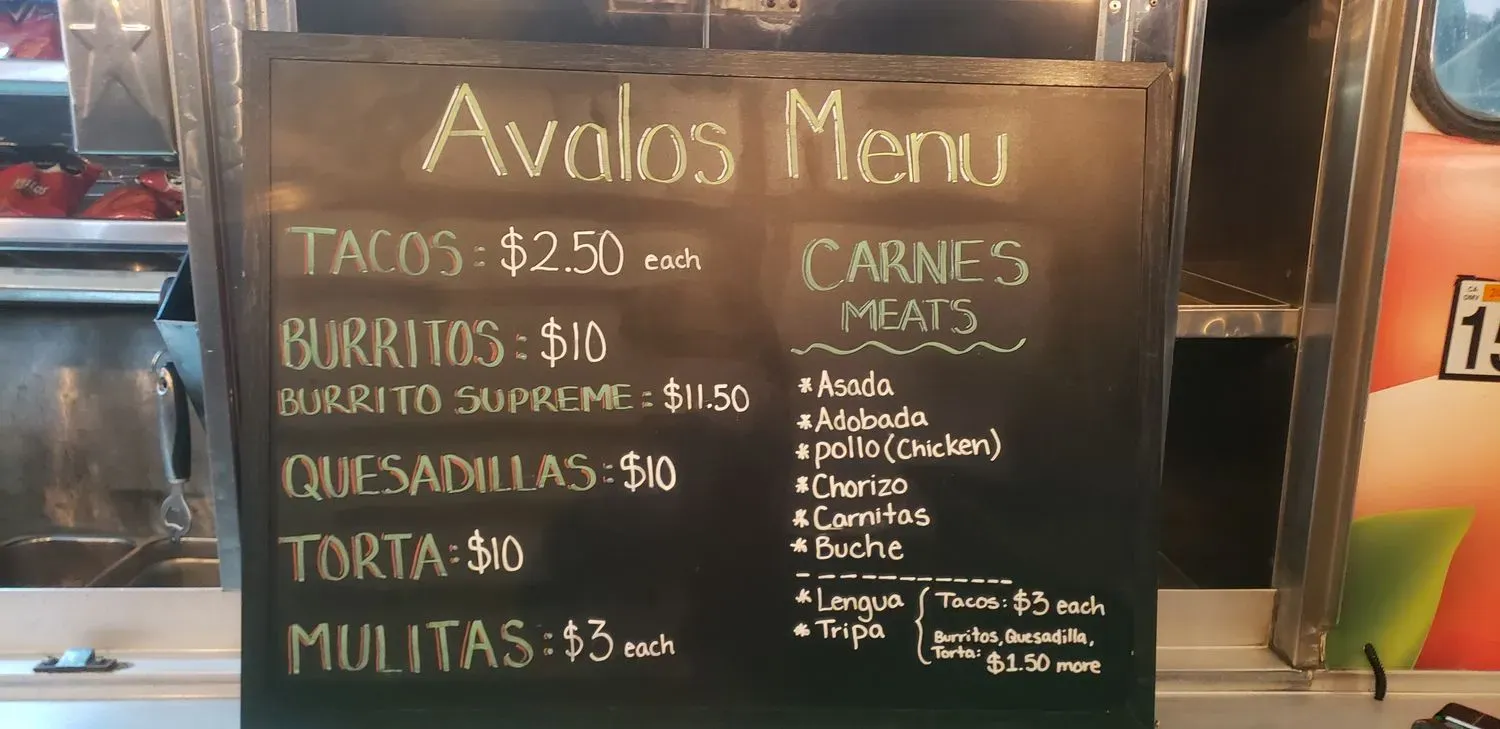 Avalos Menu
TACOS: $2.50 each
BURRITOS: $10
BURRITO SUPREME: $11.50
QUESADILLAS: $10
TORTA: $10
MULITAS: $3 each
CARNES
MEATS
* Asada
* Adobada
* pollo (Chicken)
* Chorizo
* Carnitas
* Buche
* Lengua
* Tripa
Tacos: $3 each
Burritos, Quesadilla,
Torta: $1.50 more
CA
DMV